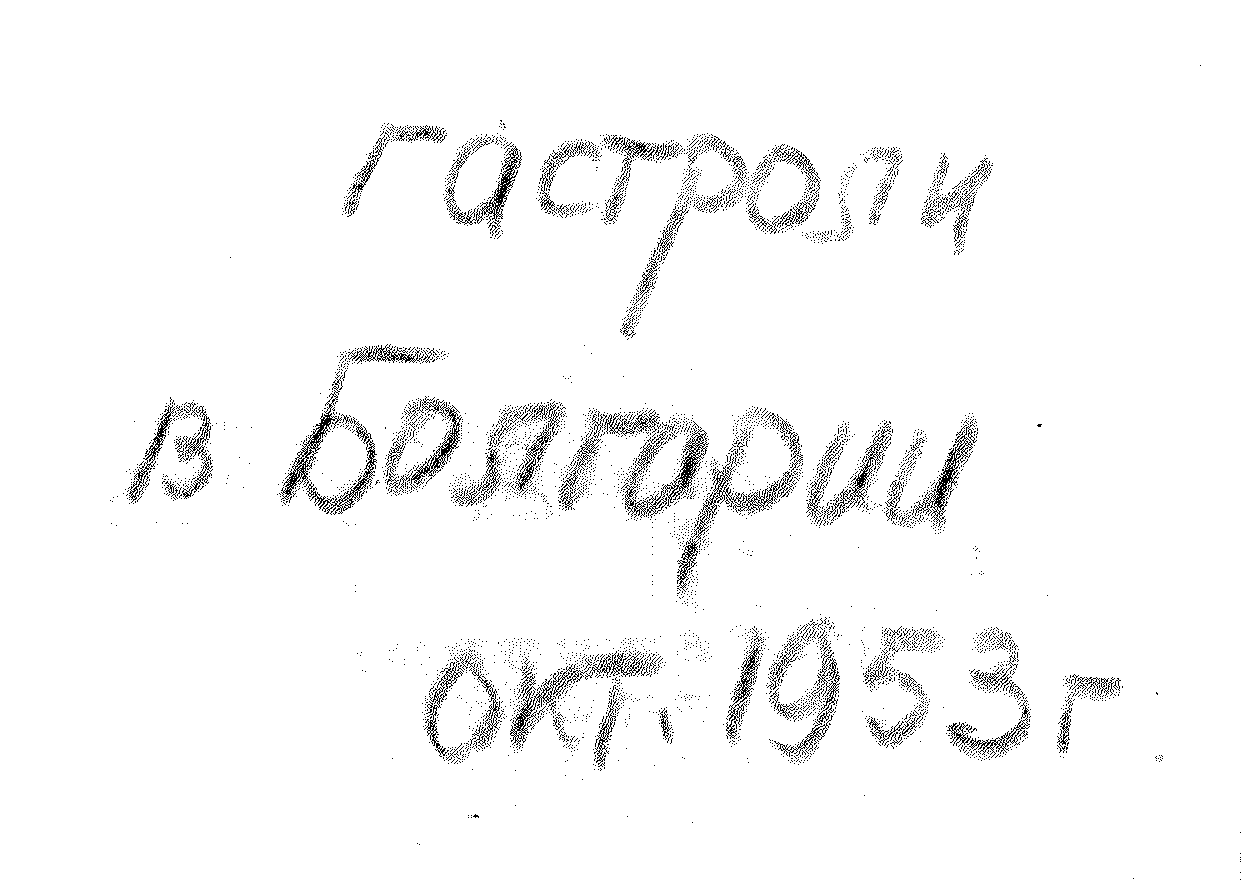 гастроли
в Болгарии
окт. 1953 г.